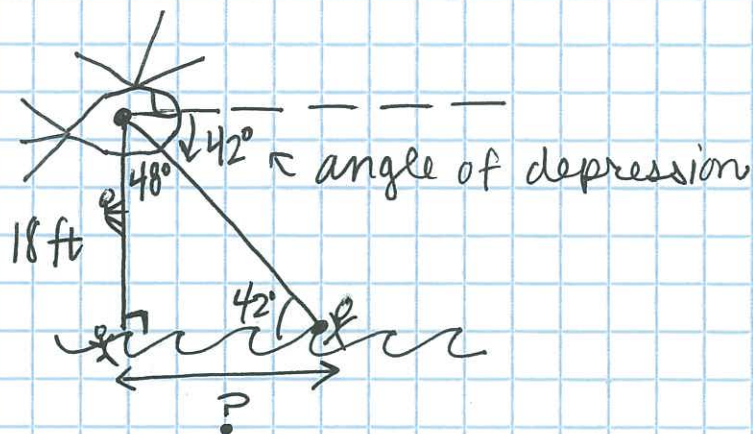 42°
angle of depression
48°
18 ft
42°
?